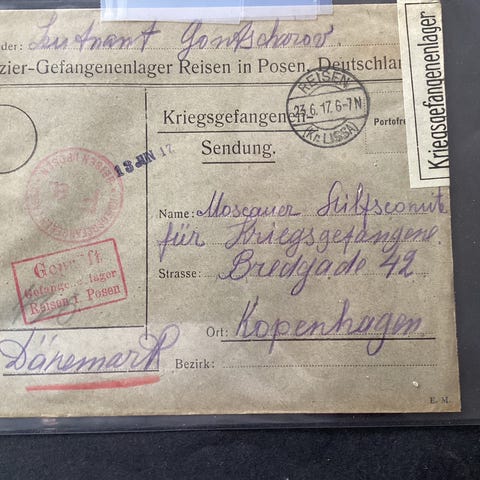 der: Leutnant Gontscharov
zier-Gefangenenlager Reisen in Posen, Deutschlan
Kriegsgefangenen-
Sendung.
Portofre
REISEN
23.6.17. 6-7N
(Kr. LISSA)
Kriegsgefangenenlager
13 JUN 17
Geprüft
Gefangenenlager
Reisen i. Posen
Name: Moscauer Hilfscomit
für Kriegsgefangene
Strasse: Bredgade 42
Ort: Kopenhagen
Dänemark
Bezirk:
E. M.